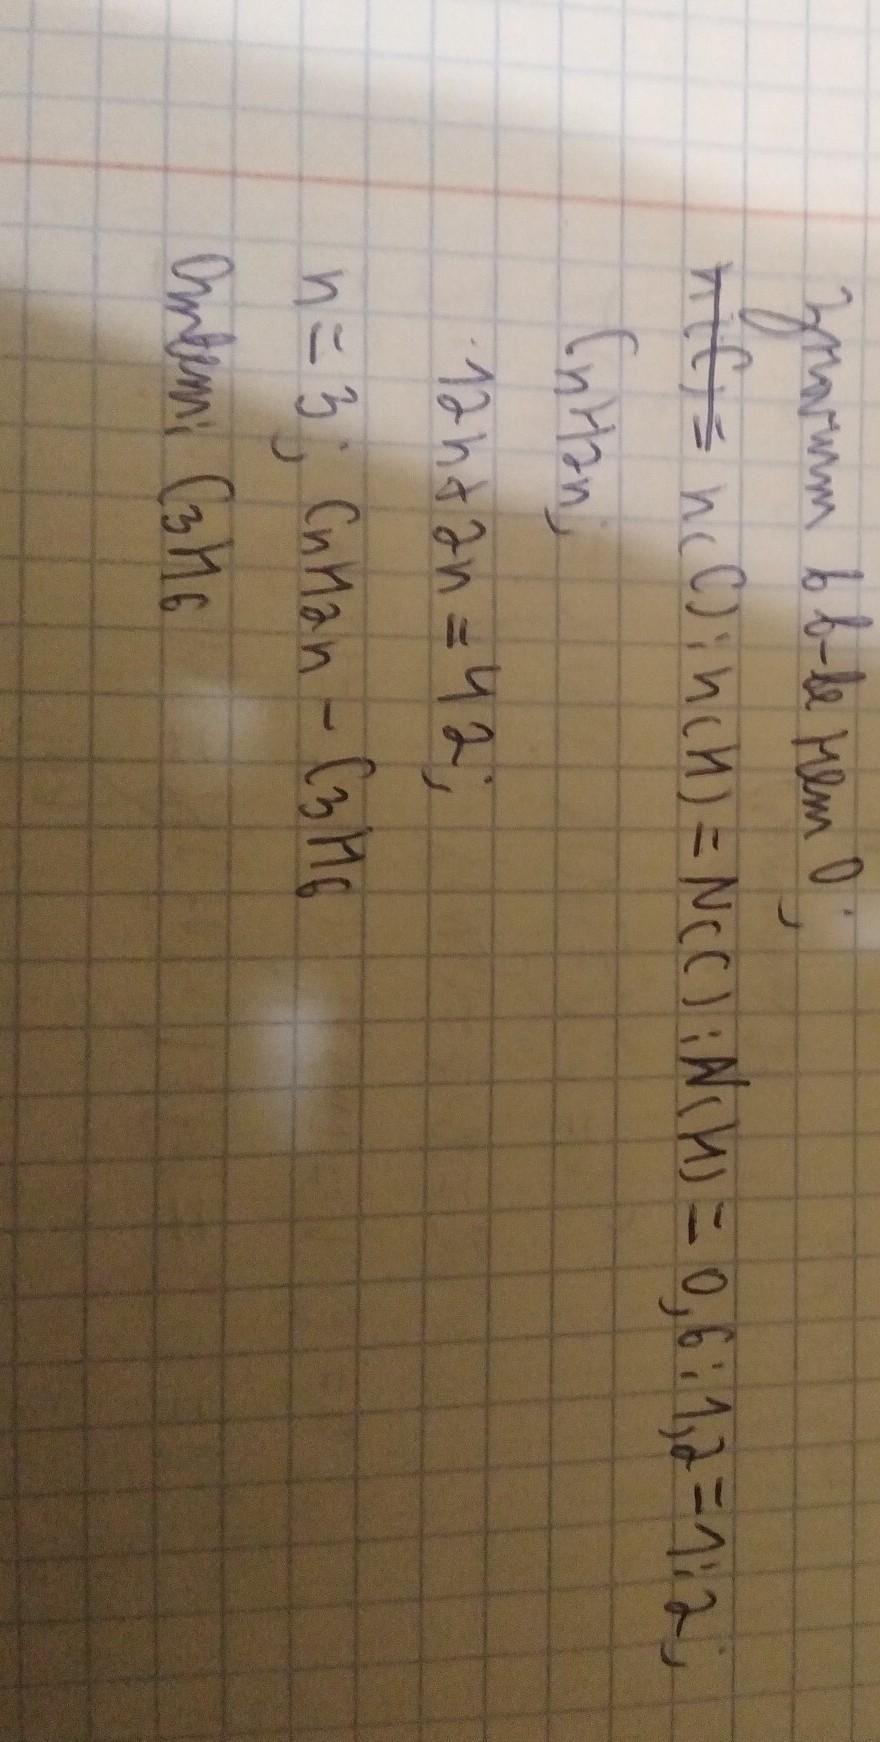 Значит в в-ве нет O;
n(C) : n(H) = N(C) : N(H) = 0,6 : 1,2 = 1 : 2;
CnH2n;
12n + 2n = 42;
n = 3; CnH2n - C3H6
Ответ: C3H6